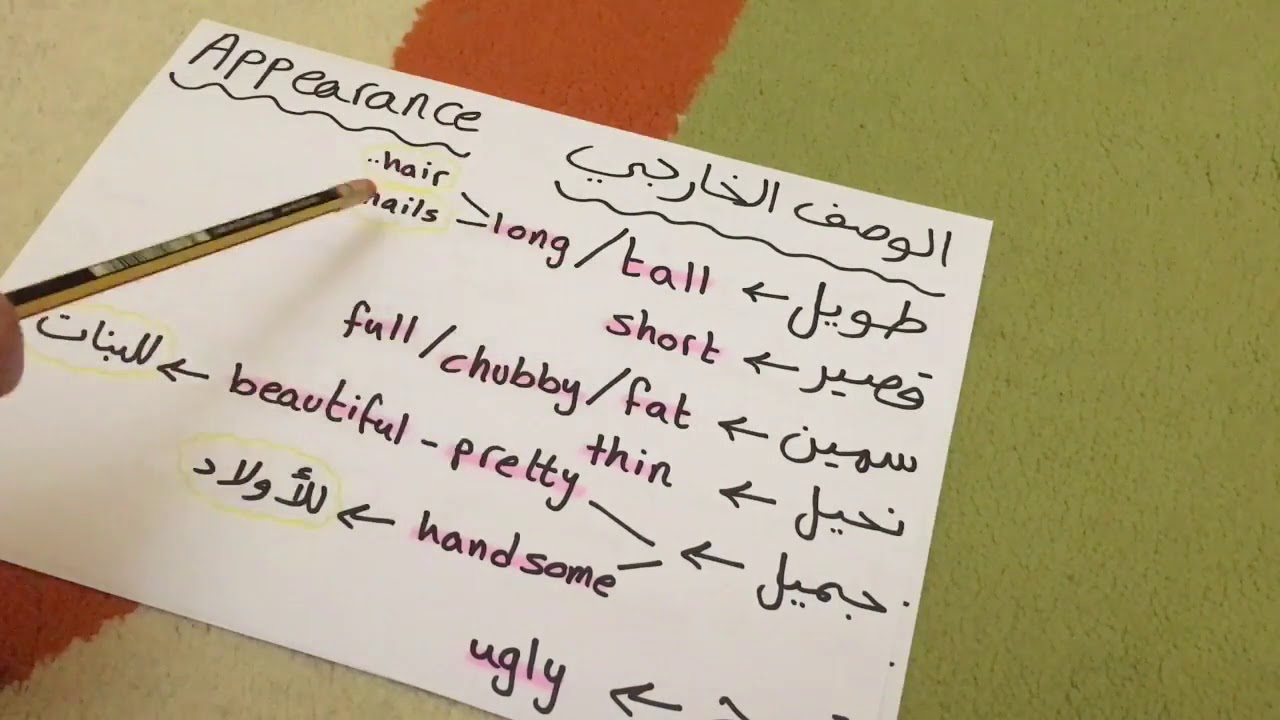 Appearance
الوصف الخارجي
..hair
nails
طويل ← tall / long
قصير ← short
سمين ← fat / chubby / full
نحيل ← thin
جميل ← pretty - beautiful ← للبنات
handsome ← للأولاد
ugly ←